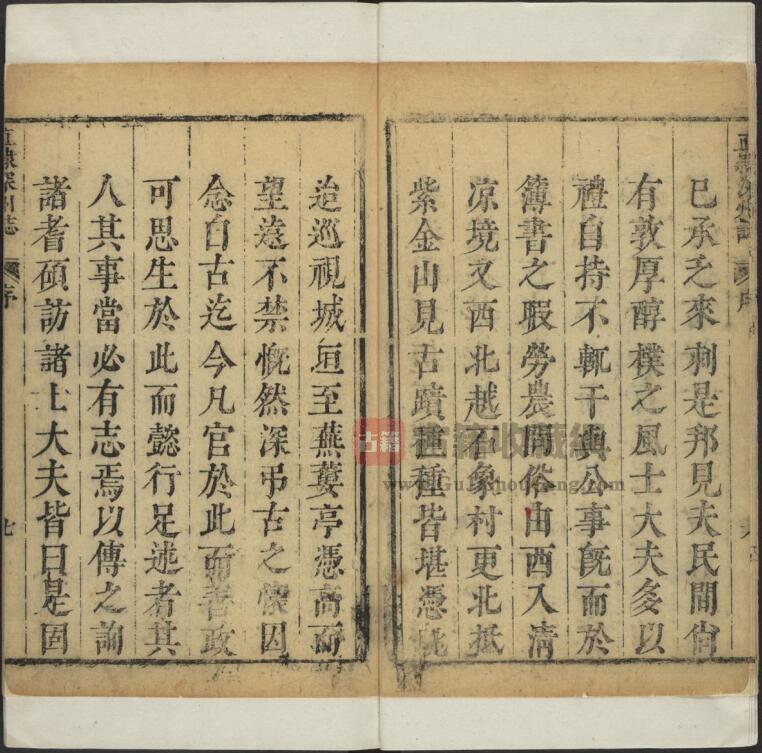 巳承乏來刺是邦見夫民間尙
有敦厚醇樸之風士大夫多以
禮自持不輒干與公事旣而於
簿書之暇勞農問俗由西入淸
凉境又西北越石象村更北抵
紫金山見古蹟種種皆堪憑眺
迨巡視城垣至蕪蔞亭憑高而
望遠不禁慨然深弔古之懷因
念自古迄今凡官於此而善政
可思生於此而懿行足述者其
人其事當必有志焉以傳之詢
諸耆碩訪諸士大夫皆曰是固
直隸深州志
序
七
古籍